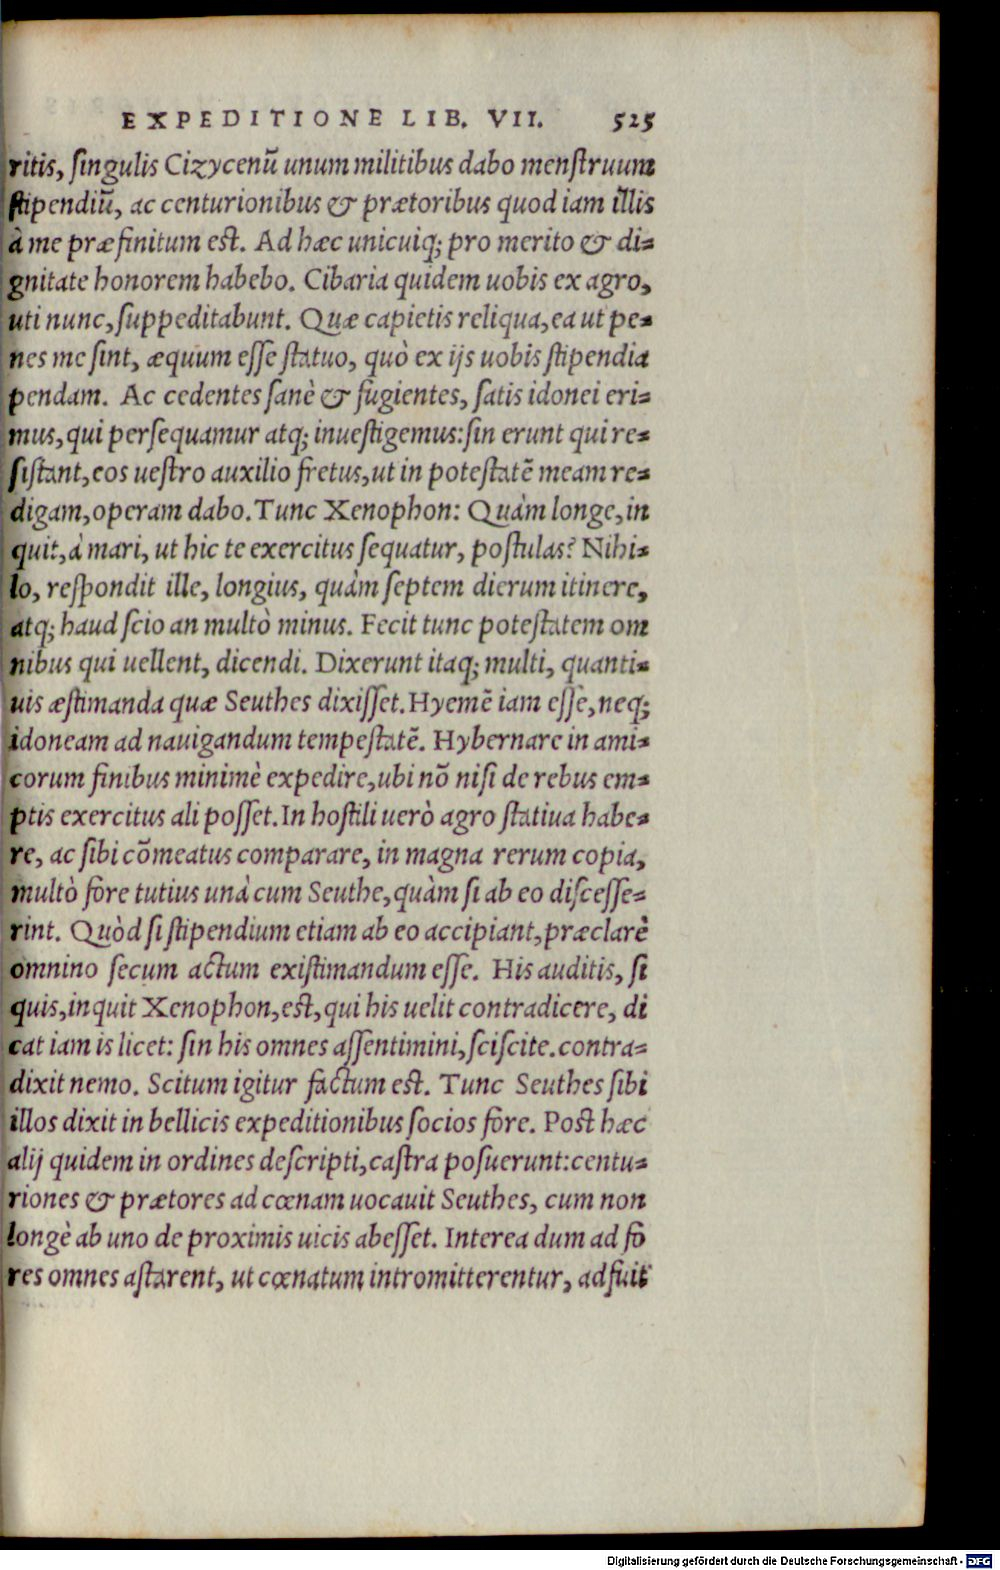 EXPEDITIONE LIB. VII. 525
ritis, singulis Cizycenū unum militibus dabo menstruum
stipendiū, ac centurionibus & prætoribus quod iam illis
à me præfinitum est. Ad hæc unicuiq; pro merito & di-
gnitate honorem habebo. Cibaria quidem uobis ex agro,
uti nunc, suppeditabunt. Quæ capietis reliqua, ea ut pe-
nes me sint, æquum esse statuo, quò ex ijs uobis stipendia
pendam. Ac cedentes sanè & fugientes, satis idonei eri-
mus, qui persequamur atq; inuestigemus: sin erunt qui re-
sistant, eos uestro auxilio fretus, ut in potestatē meam re-
digam, operam dabo. Tunc Xenophon: Quàm longe, in
quit, à mari, ut hic te exercitus sequatur, postulas? Nihi-
lo, respondit ille, longius, quàm septem dierum itinere,
atq; haud scio an multò minus. Fecit tunc potestatem om
nibus qui uellent, dicendi. Dixerunt itaq; multi, quanti-
uis æstimanda quæ Seuthes dixisset. Hyemē iam esse, neq;
idoneam ad nauigandum tempestatē. Hybernare in ami-
corum finibus minimè expedire, ubi nō nisi de rebus em-
ptis exercitus ali posset. In hostili uerò agro statiua habe-
re, ac sibi cōmeatus comparare, in magna rerum copia,
multò fore tutius unà cum Seuthe, quàm si ab eo discesse-
rint. Quòd si stipendium etiam ab eo accipiant, præclarè
omnino secum actum existimandum esse. His auditis, si
quis, inquit Xenophon, est, qui his uelit contradicere, di
cat iam is licet: sin his omnes assentimini, sciscite. contra-
dixit nemo. Scitum igitur factum est. Tunc Seuthes sibi
illos dixit in bellicis expeditionibus socios fore. Post hæc
alij quidem in ordines descripti, castra posuerunt: centu-
riones & prætores ad cœnam uocauit Seuthes, cum non
longè ab uno de proximis uicis abesset. Interea dum ad fo
res omnes astarent, ut cœnatum intromitterentur, adfuit
Digitalisierung gefördert durch die Deutsche Forschungsgemeinschaft - DFG